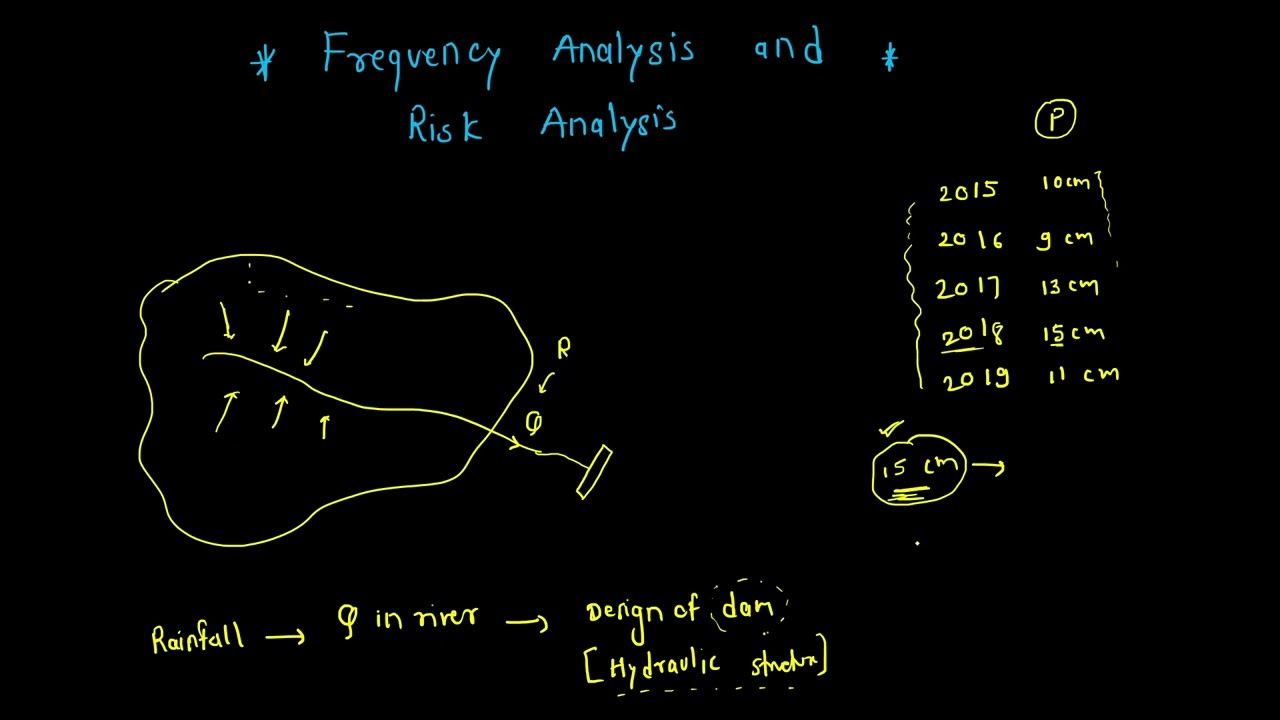 * Frequency Analysis and *
Risk Analysis
P
2015 10cm
2016 9 cm
2017 13 cm
2018 15cm
2019 11 cm
R
Q
15 cm →
Rainfall → Q in river → Design of dam
[Hydraulic structure]